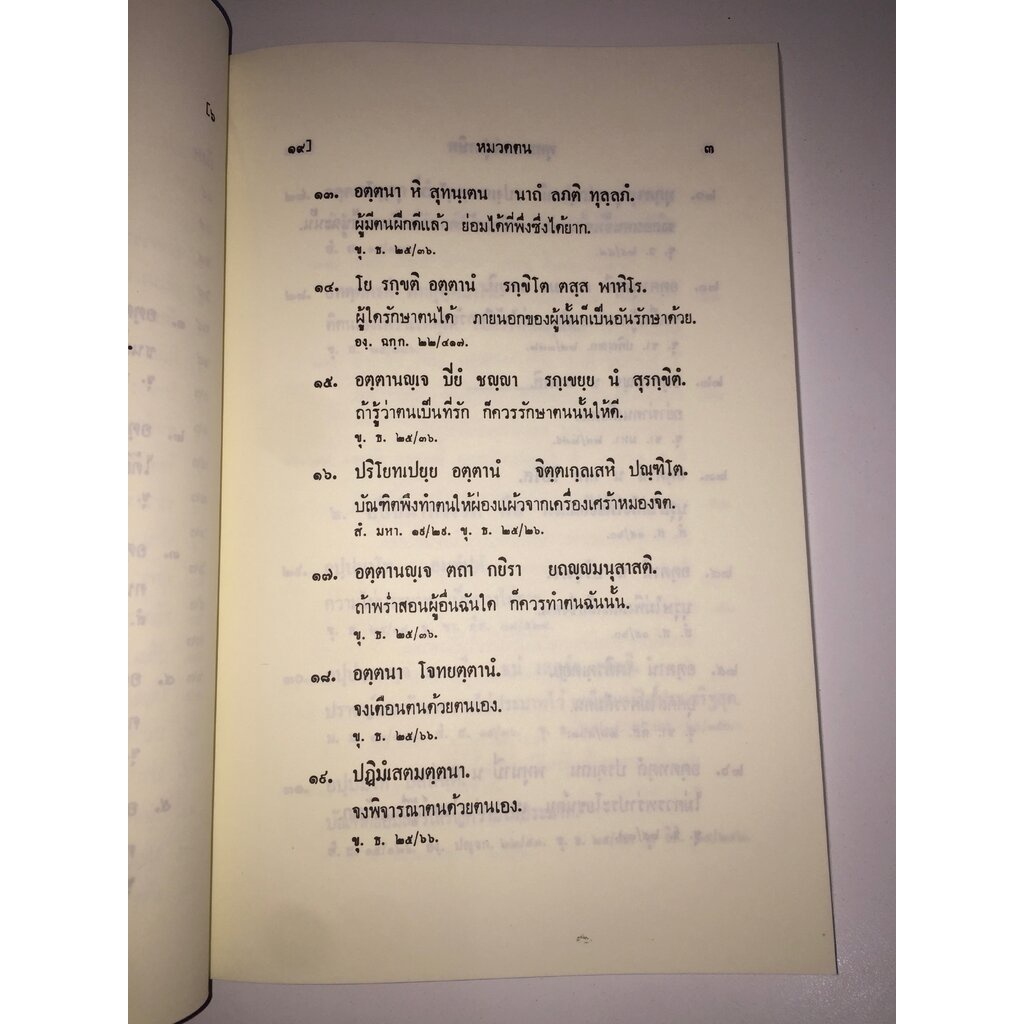 ๑๙] หมวดตน ๓
๑๓. อตฺตนา หิ สุทนฺเตน นาถํ ลภติ ทุลฺลภํ.
ผู้มีตนฝึกดีแล้ว ย่อมได้ที่พึ่งซึ่งได้ยาก.
ขุ. ธ. ๒๕/๓๖.
๑๔. โย รกฺขติ อตฺตานํ รกฺขิโต ตสฺส พาหิโร.
ผู้ใดรักษาตนได้ ภายนอกของผู้นั้นก็เป็นอันรักษาด้วย.
องฺ. ฉกฺก. ๒๒/๔๑๗.
๑๕. อตฺตานญฺเจ ปิยํ ชญฺญา รกฺเขยฺย นํ สุรกฺขิตํ.
ถ้ารู้ว่าตนเป็นที่รัก ก็ควรรักษาตนนั้นให้ดี.
ขุ. ธ. ๒๕/๓๖.
๑๖. ปริโยทเปยฺย อตฺตานํ จิตฺตเกฺลเสหิ ปณฺฑิโต.
บัณฑิตพึงทำตนให้ผ่องแผ้วจากเครื่องเศร้าหมองจิต.
สํ. มหา. ๑๙/๒๙. ขุ. ธ. ๒๕/๒๖.
๑๗. อตฺตานญฺเจ ตถา กยิรา ยถญฺญมนุสาสติ.
ถ้าพร่ำสอนผู้อื่นฉันใด ก็ควรทำตนฉันนั้น.
ขุ. ธ. ๒๕/๓๖.
๑๘. อตฺตนา โจทยตฺตานํ.
จงเตือนตนด้วยตนเอง.
ขุ. ธ. ๒๕/๖๖.
๑๙. ปฏิมํเสตมตฺตนา.
จงพิจารณาตนด้วยตนเอง.
ขุ. ธ. ๒๕/๖๖.